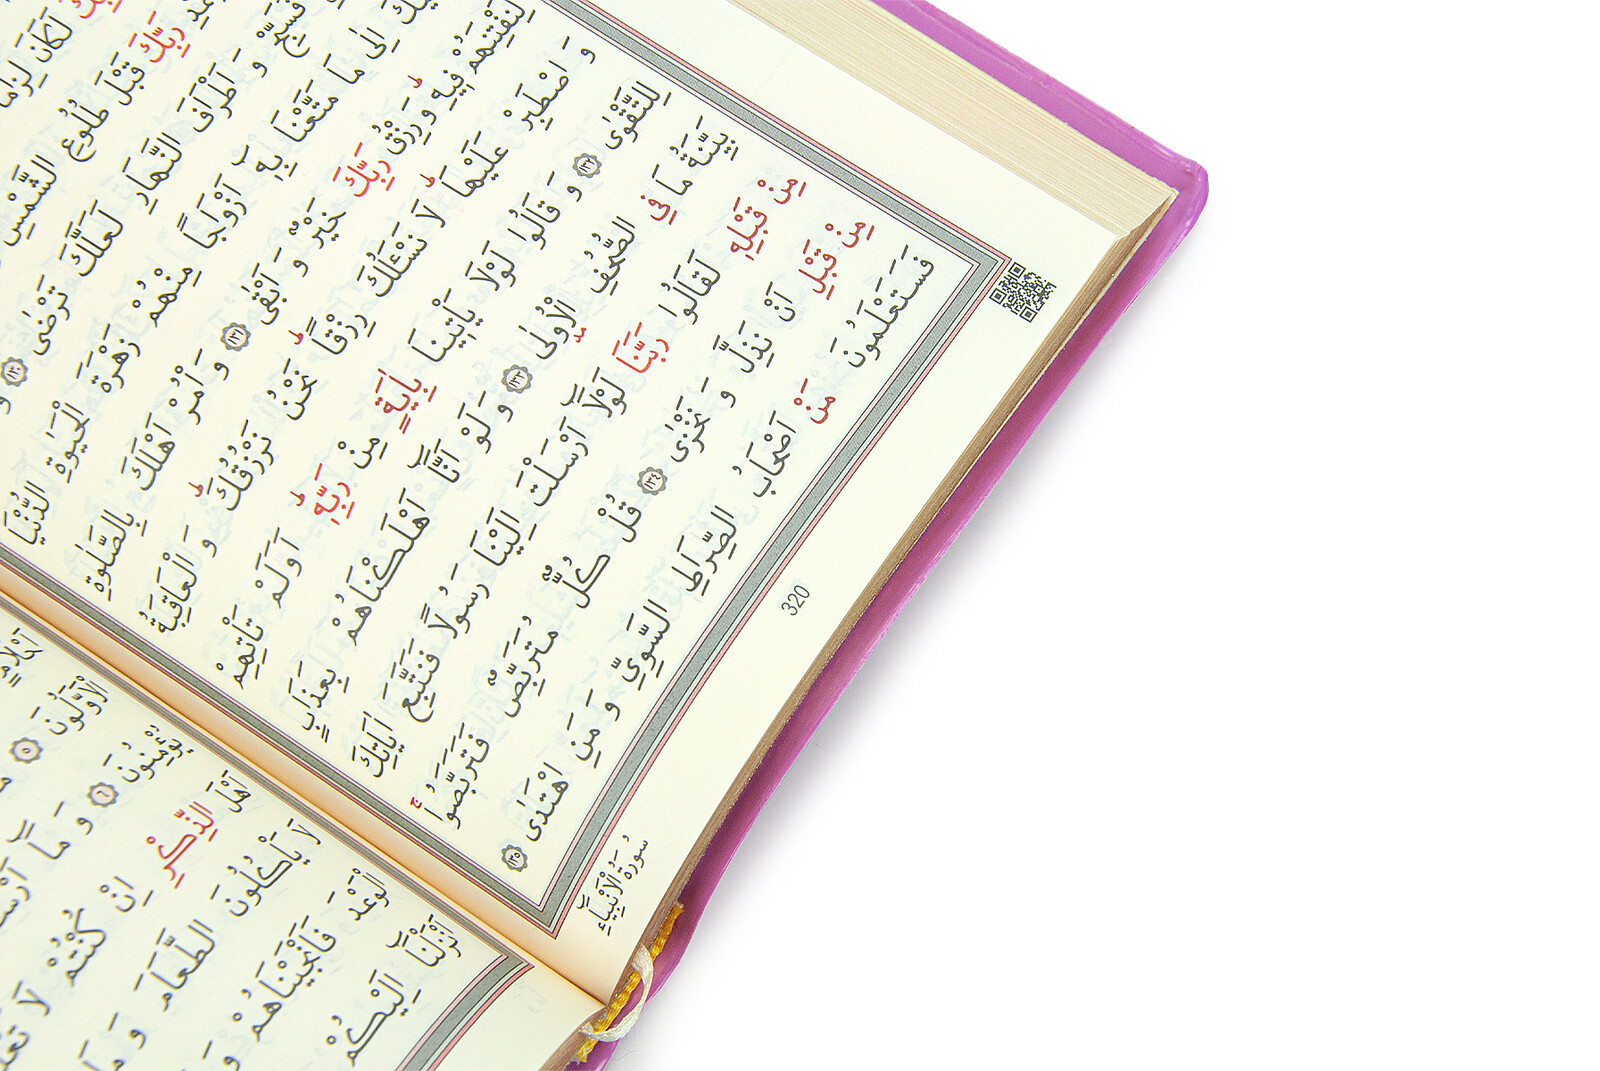 لَكَانَ لِزَامًا
رَبِّكَ قَبْلَ طُلُوعِ الشَّمْسِ
فَسَبِّحْ وَ اَطْرَافَ النَّهَارِ لَعَلَّكَ تَرْضٰى ﴿١٣٠﴾ وَ
اِلٰى مَا مَتَّعْنَا بِهٖٓ اَزْوَاجًا مِنْهُمْ زَهْرَةَ الْحَيٰوةِ الدُّنْيَا
لِنَفْتِنَهُمْ فِيهِ وَ رِزْقُ رَبِّكَ خَيْرٌ وَ اَبْقٰى ﴿١٣١﴾ وَ اْمُرْ اَهْلَكَ بِالصَّلٰوةِ
وَ اصْطَبِرْ عَلَيْهَا لَا نَسْـَٔلُكَ رِزْقًا نَحْنُ نَرْزُقُكَ وَ الْعَاقِبَةُ
لِلتَّقْوٰى ﴿١٣٢﴾ وَ قَالُوا لَوْلَا يَأْتِينَا بِاٰيَةٍ مِنْ رَبِّهٖ اَوَلَمْ تَأْتِهِمْ
بَيِّنَةُ مَا فِي الصُّحُفِ الْاُولٰى ﴿١٣٣﴾ وَ لَوْ اَنَّٓا اَهْلَكْنَاهُمْ بِعَذَابٍ
مِنْ قَبْلِهٖ لَقَالُوا رَبَّنَا لَوْلَٓا اَرْسَلْتَ اِلَيْنَا رَسُولًا فَنَتَّبِعَ اٰيَاتِكَ
مِنْ قَبْلِ اَنْ نَذِلَّ وَ نَخْزٰى ﴿١٣٤﴾ قُلْ كُلٌّ مُتَرَبِّصٌ فَتَرَبَّصُوا
فَسَتَعْلَمُونَ مَنْ اَصْحَابُ الصِّرَاطِ السَّوِيِّ وَ مَنِ اهْتَدٰى ﴿١٣٥﴾
320
سُورَةُ الْاَنْبِيَٓاءِ
اَحْلَامٍ
الْاَوَّلُونَ ﴿٥﴾
يُؤْمِنُونَ ﴿٦﴾ وَ مَٓا
اَهْلَ الذِّكْرِ اِنْ كُنْتُمْ لَا
لَا يَأْكُلُونَ الطَّعَامَ وَ مَا
الْوَعْدَ فَاَنْجَيْنَاهُمْ وَ
اَنْزَلْنَٓا اِلَيْكُمْ